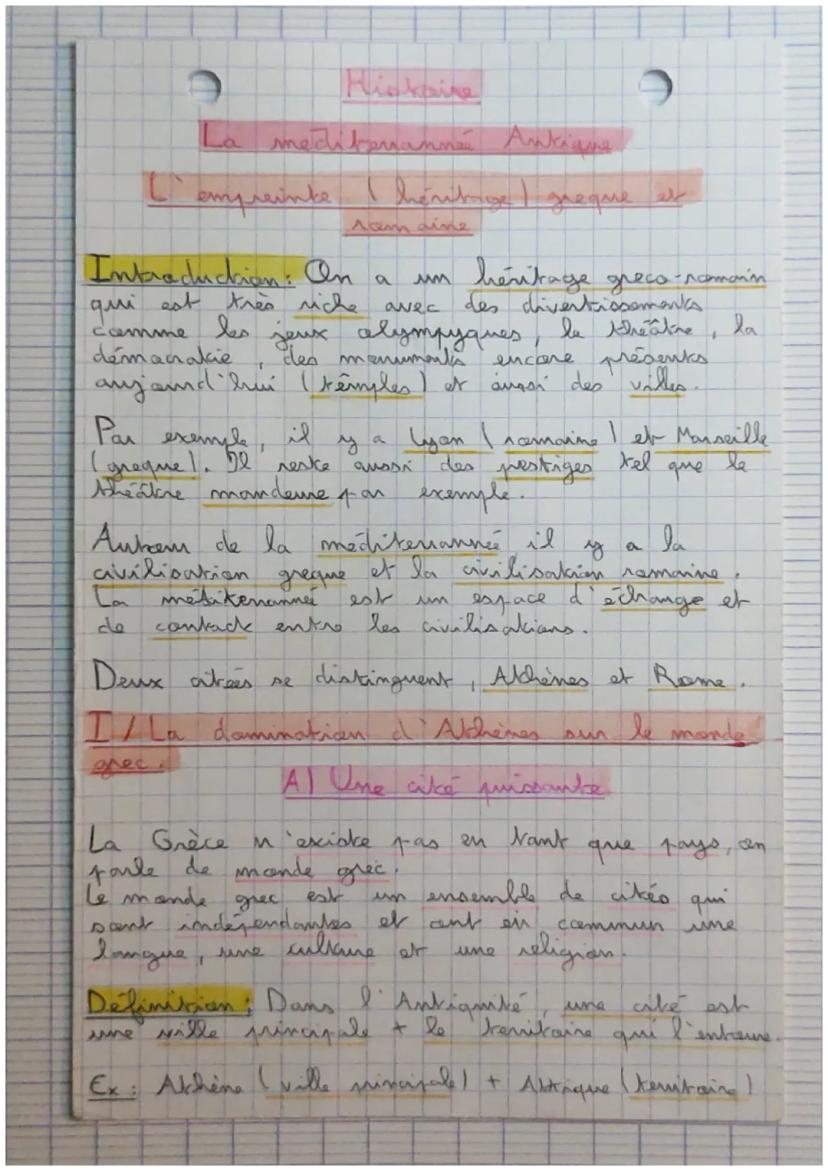 Histoire
La méditerrannée Antique
L'empreinte (héritage) greque et
romaine
Introduction: On a un héritage greco-romain
qui est très riche avec des divertissements
comme les jeux olympyques, le théâtre, la
démocratie, des monuments encore présents
aujourd'hui (temples) et aussi des villes.
Par exemple, il y a Lyon (romaine) et Marseille
(greque). Il reste aussi des prestiges tel que le
théâtre mondeure par exemple.
Autour de la méditerrannée il y a la
civilisation greque et la civilisation romaine.
La méditerrannée est un espace d'échange et
de contact entre les civilisations.
Deux citées se distinguent, Athènes et Rome.
I/ La domination d'Athènes sur le monde
grec.
A) Une cité puissante
La Grèce n'existe pas en tant que pays, on
parle de monde grec.
Le monde grec est un ensemble de cités qui
sont indépendantes et ont en commun une
langue, une culture et une religion.
Définition: Dans l'Antiquité, une cité est
une ville principale + le territoire qui l'entoure.
Ex: Athène (ville principale) + Attique (territoire)